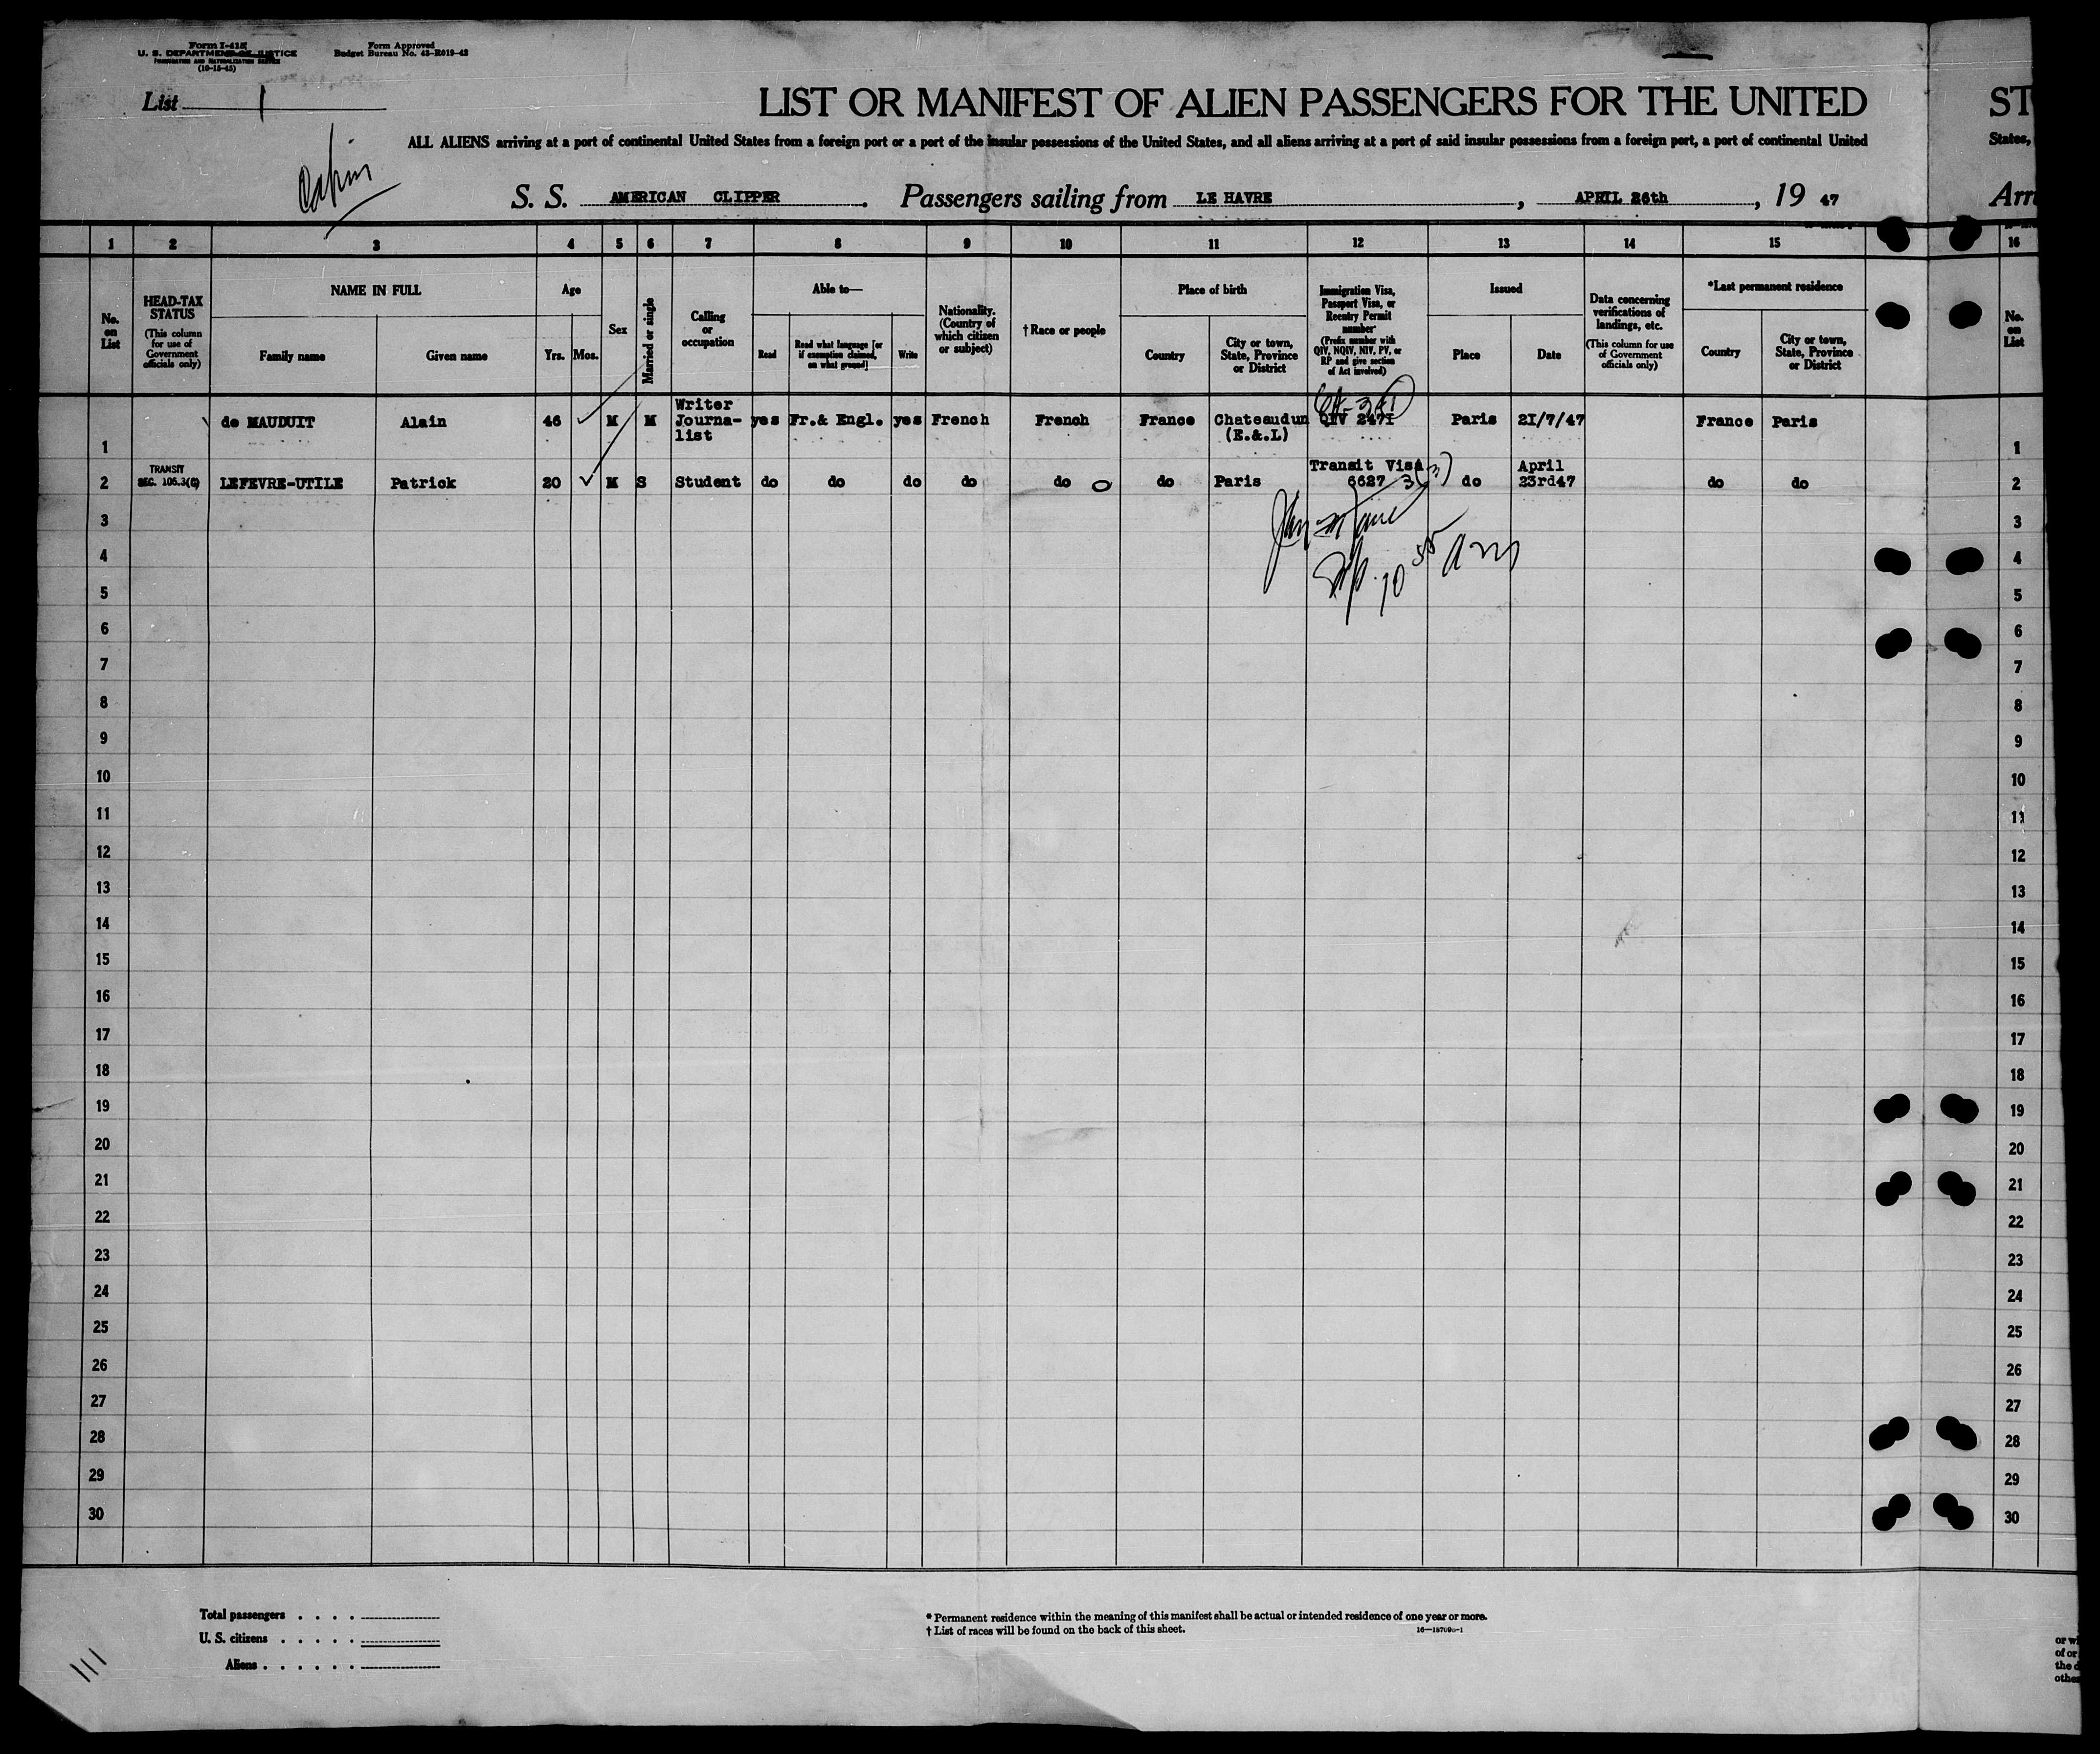 Form I-415
U. S. DEPARTMENT OF JUSTICE
IMMIGRATION AND NATURALIZATION SERVICE
(10-15-45)
Form Approved
Budget Bureau No. 43-R019-42
List 1
LIST OR MANIFEST OF ALIEN PASSENGERS FOR THE UNITED
ST
ALL ALIENS arriving at a port of continental United States from a foreign port or a port of the insular possessions of the United States, and all aliens arriving at a port of said insular possessions from a foreign port, a port of continental United
States,
S. S. AMERICAN CLIPPER. Passengers sailing from LE HAVRE, APRIL 26th, 19 47
Arri
1 2 3 4 5 6 7 8 9 10 11 12 13 14 15 16
No. on List
HEAD-TAX STATUS (This column for use of Government officials only)
NAME IN FULL
Family name
Given name
Age
Yrs.
Mos.
Sex
Married or single
Calling or occupation
Able to—
Read
Read what language [or if exemption claimed, on what ground]
Write
Nationality. (Country of which citizen or subject)
†Race or people
Place of birth
Country
City or town, State, Province or District
Immigration Visa, Passport Visa, or Reentry Permit number (Prefix number with QIV, NQIV, NIV, PV, or RP and give section of Act involved)
Issued
Place
Date
Data concerning verifications of landings, etc. (This column for use of Government officials only)
*Last permanent residence
Country
City or town, State, Province or District
No. on List
1 de MAUDUIT Alain 46 M M Writer Journa-list yes Fr.& Engl. yes French French France Chateaudun (E.&.L) QIV 247I Paris 2I/7/47 France Paris 1
2 TRANSIT SEC. 105.3(C) LEFEVRE-UTILE Patrick 20 M S Student do do do do do do Paris Transit Visa 6627 3(3) do April 23rd47 do do 2
10 55 am
3 3
4 4
5 5
6 6
7 7
8 8
9 9
10 10
11 11
12 12
13 13
14 14
15 15
16 16
17 17
18 18
19 19
20 20
21 21
22 22
23 23
24 24
25 25
26 26
27 27
28 28
29 29
30 30
Total passengers . . . .
U. S. citizens . . . . .
Aliens . . . . . .
* Permanent residence within the meaning of this manifest shall be actual or intended residence of one year or more.
† List of races will be found on the back of this sheet.
111
or wi
of or
the d
othe